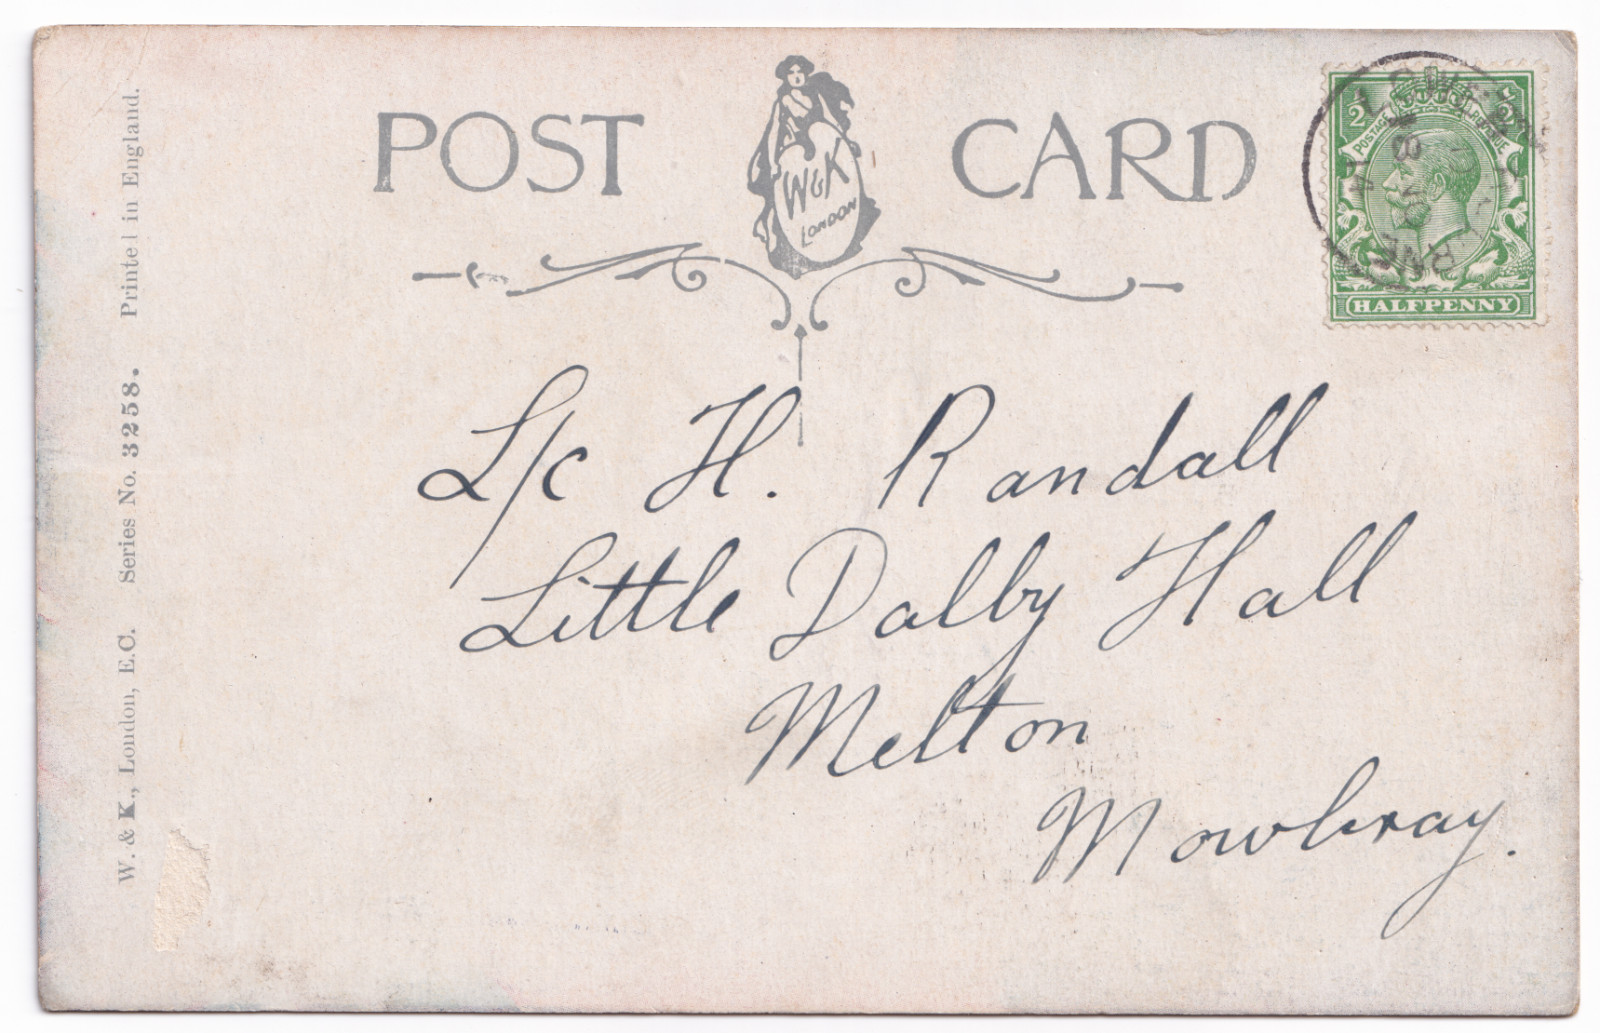 POST CARD
W & K
LONDON
1/2 1/2
POSTAGE REVENUE
HALFPENNY
L/c H. Randall
Little Dalby Hall
Melton
Mowbray.
W. & K., London, E.C. Series No. 3258. Printed in England.